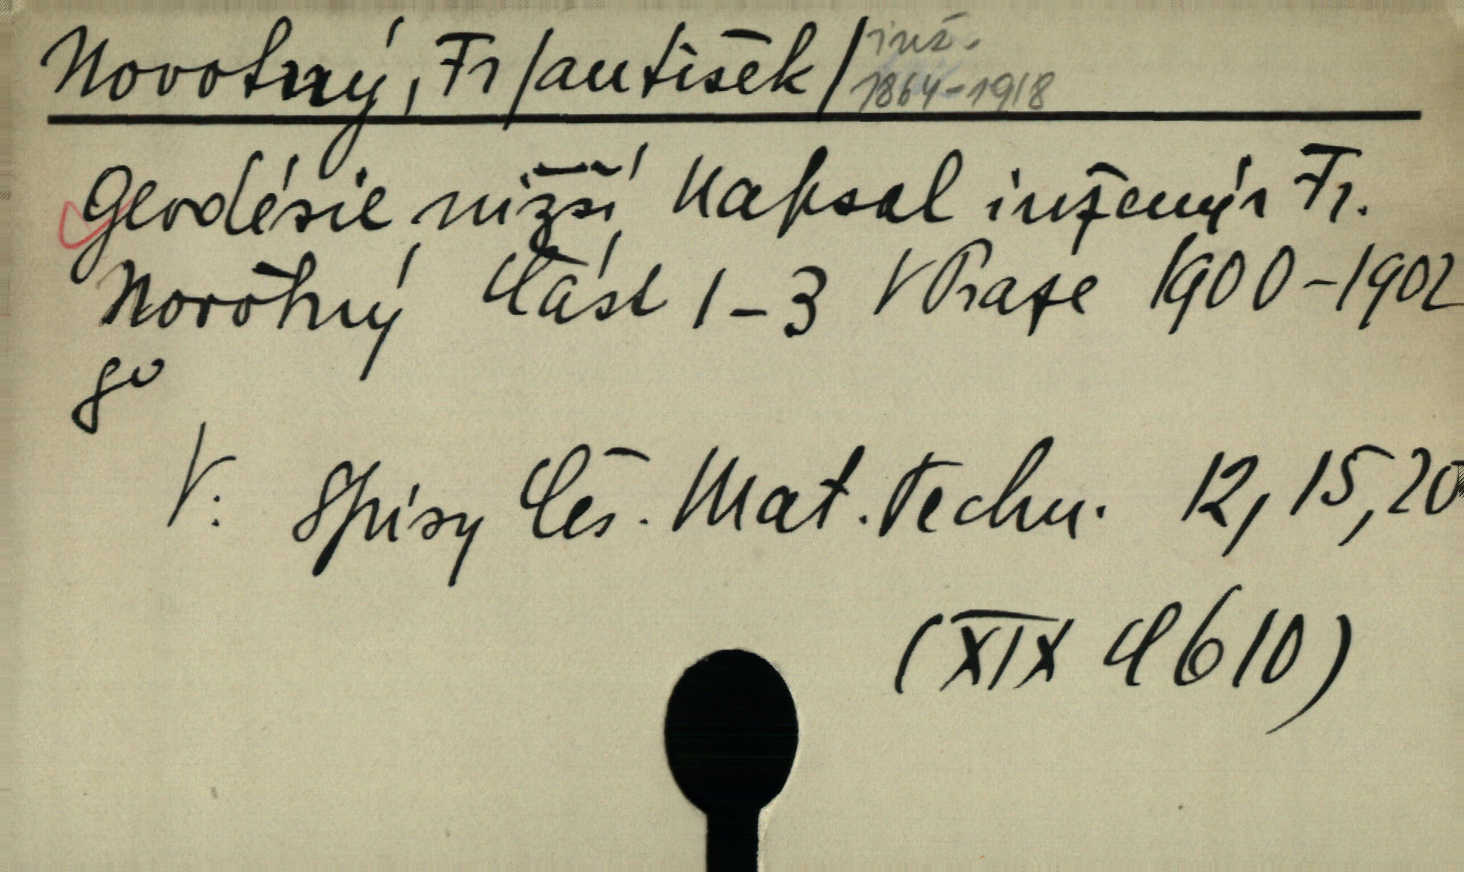 Novotný, Fr/antišek/ inž.
1864-1918
Geodésie nižší Napsal inženýr Fr.
Novotný Část 1-3 V Praze 1900-1902
8°
V: Spisy Čes. Mat. Techn. 12, 15, 20
(XIX C 610)